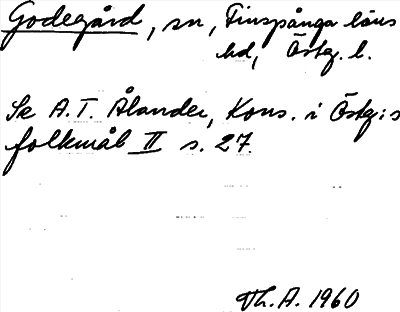 Godegård, sn, Finspånga läns
hd, Östg. l.
Se A.T. Ålander, Kons. i Östg:s
folkmål II s. 27.
Th. A. 1960